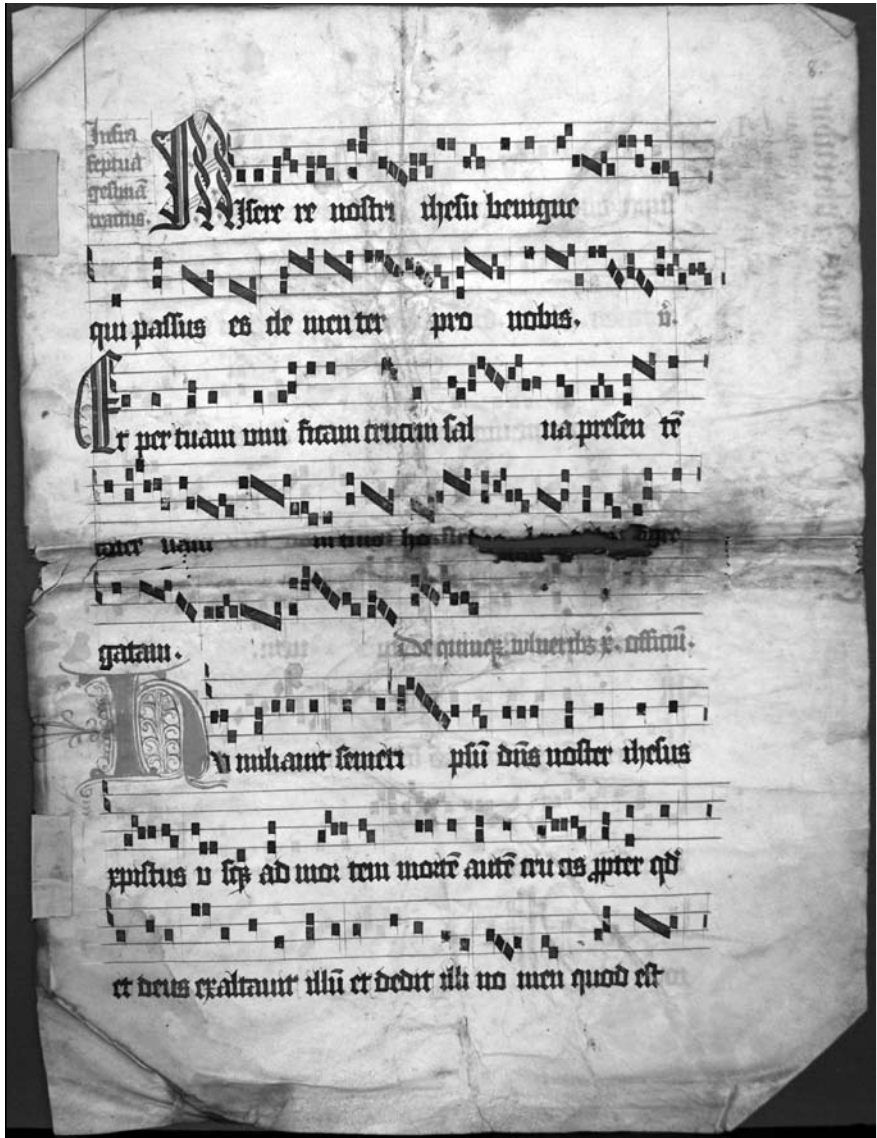 8.
Infra
septua
gesimā
tractus.
MIsere re nostri ihesu benigne
qui passus es cle men ter pro nobis. v̄.
Et per tuam viui ficam crucem sal ua presen tē
cater uam
gatam. De quinqꝫ wlneribꝫ x. officiū.
Hu miliauit semeti psū dn̄s noster ihesus
xpistus u sqꝫ ad mor tem mortē autē cru cis ꝓpter qd̄
et deus exaltauit illū et dedit illi no men quod est